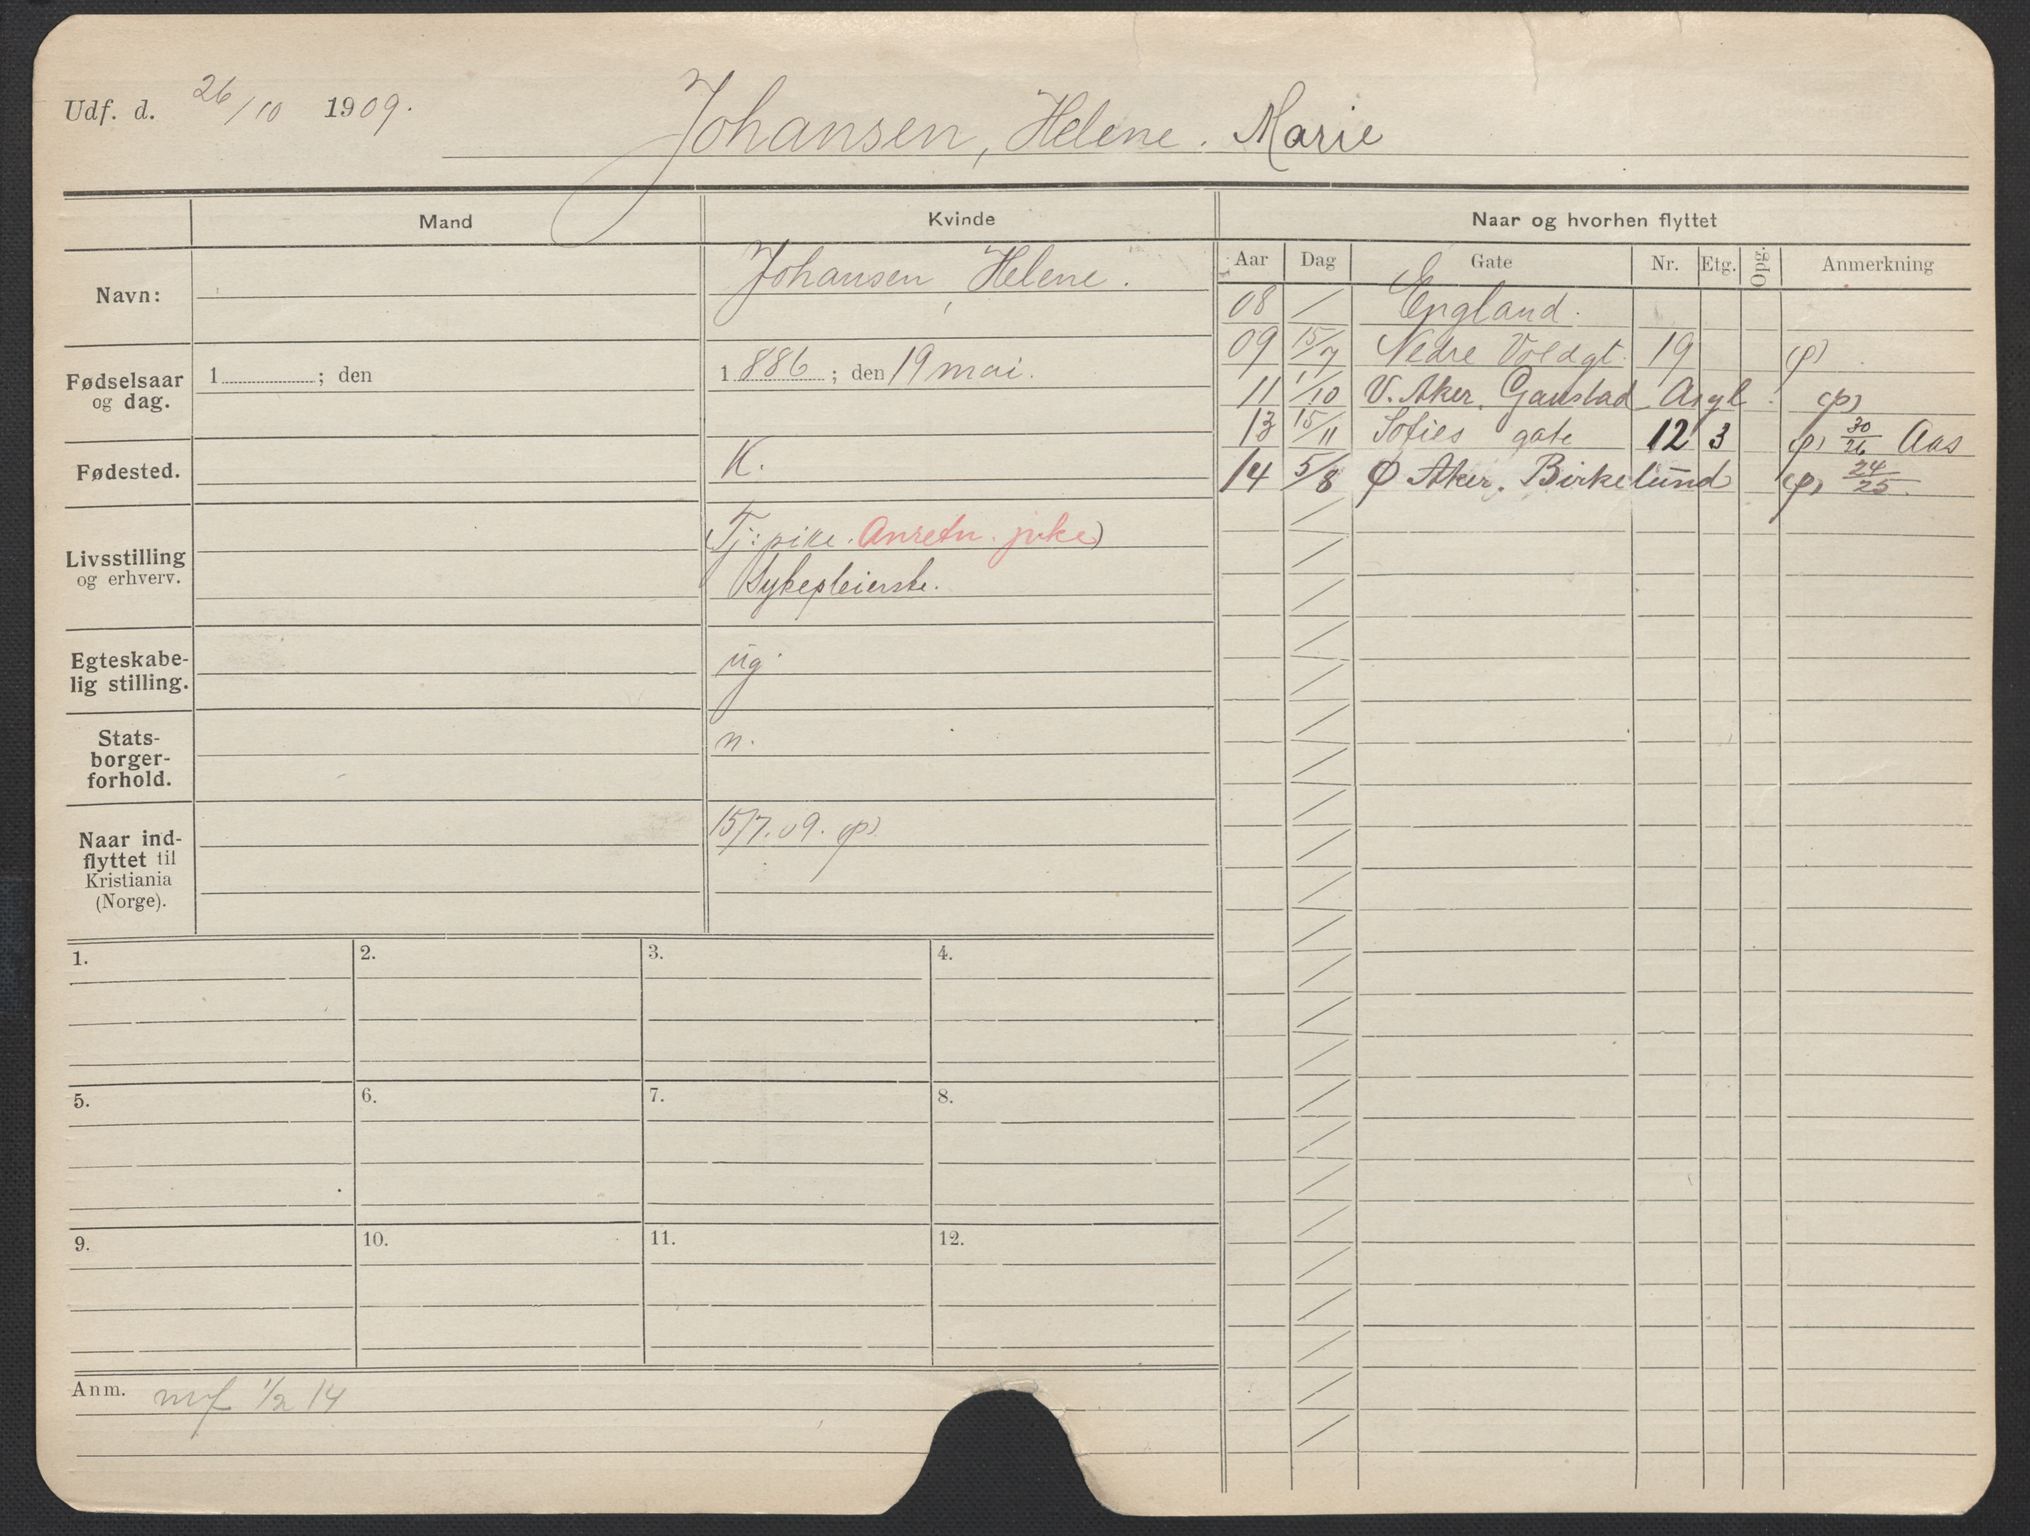 Udf. d. 26/10 1909.
Johansen, Helene. Marie
Mand
Kvinde
Naar og hvorhen flyttet
Navn:
Johansen, Helene.
Fødselsaar og dag.
1 ; den
1886 ; den 19 mai.
Fødested.
K.
Livsstilling og erhverv.
(Tj: pike. Anretn. pike)
Sykepleierske.
Egteskabe-
lig stilling.
ug.
Stats-
borger-
forhold.
n.
Naar ind-
flyttet til
Kristiania
(Norge).
15/7.09. (p)
Aar Dag Gate Nr. Etg. Opg. Anmerkning
08 / England.
09 15/7 Nedre Voldgt. 19 (p)
11 1/10 V. Aker. Gaustad Asyl. (p)
13 15/11 Sofies gate 12 3 (p) 30/26 Aas
14 5/8 Ø Aker. Birkelund (p) 24/25.
1. 2. 3. 4.
5. 6. 7. 8.
9. 10. 11. 12.
Anm. mf 1/2 14